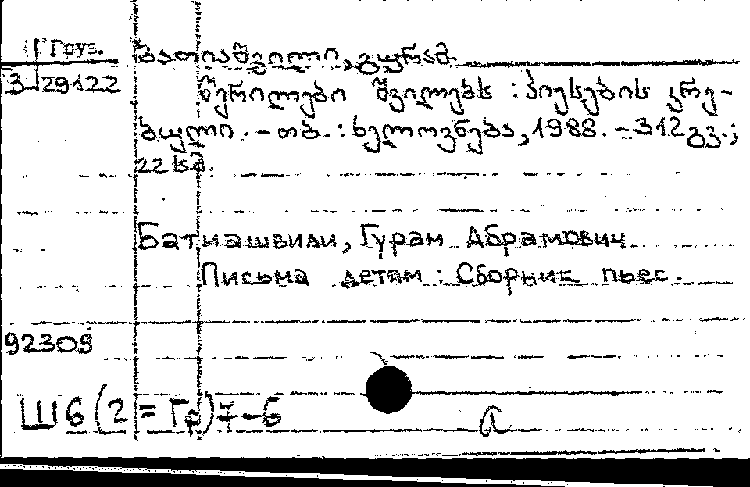 Груз. ბათიაშვილი, გურამ.
3-29122 წერილები შვილებს : პიესების კრე-
ბული. - თბ. : ხელოვნება, 1988. - 312 გვ. ;
22 სმ.
Батиашвили, Гурам Абрамович
Письма детям : Сборник пьес.
92309
Ш6(2=Гр)7-6
a